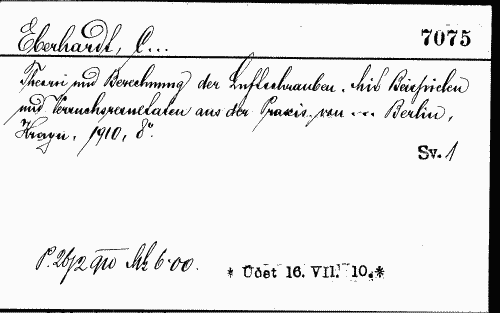 Eberhardt, C...
7075
Theori und Berechnung der Luftschrauben. Mit Beispielen
und Versuchsresultaten aus der Praxis. von ... Berlin,
1910, 8°.
Sv. 1
P. 26/2 910 Mk 6·00.
* Účet 16. VII. 10.*